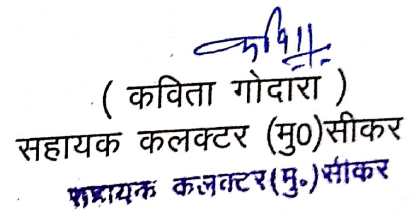 ( कविता गोदारा )
सहायक कलक्टर (मु0)सीकर
सहायक कलक्टर(मु.)सीकर